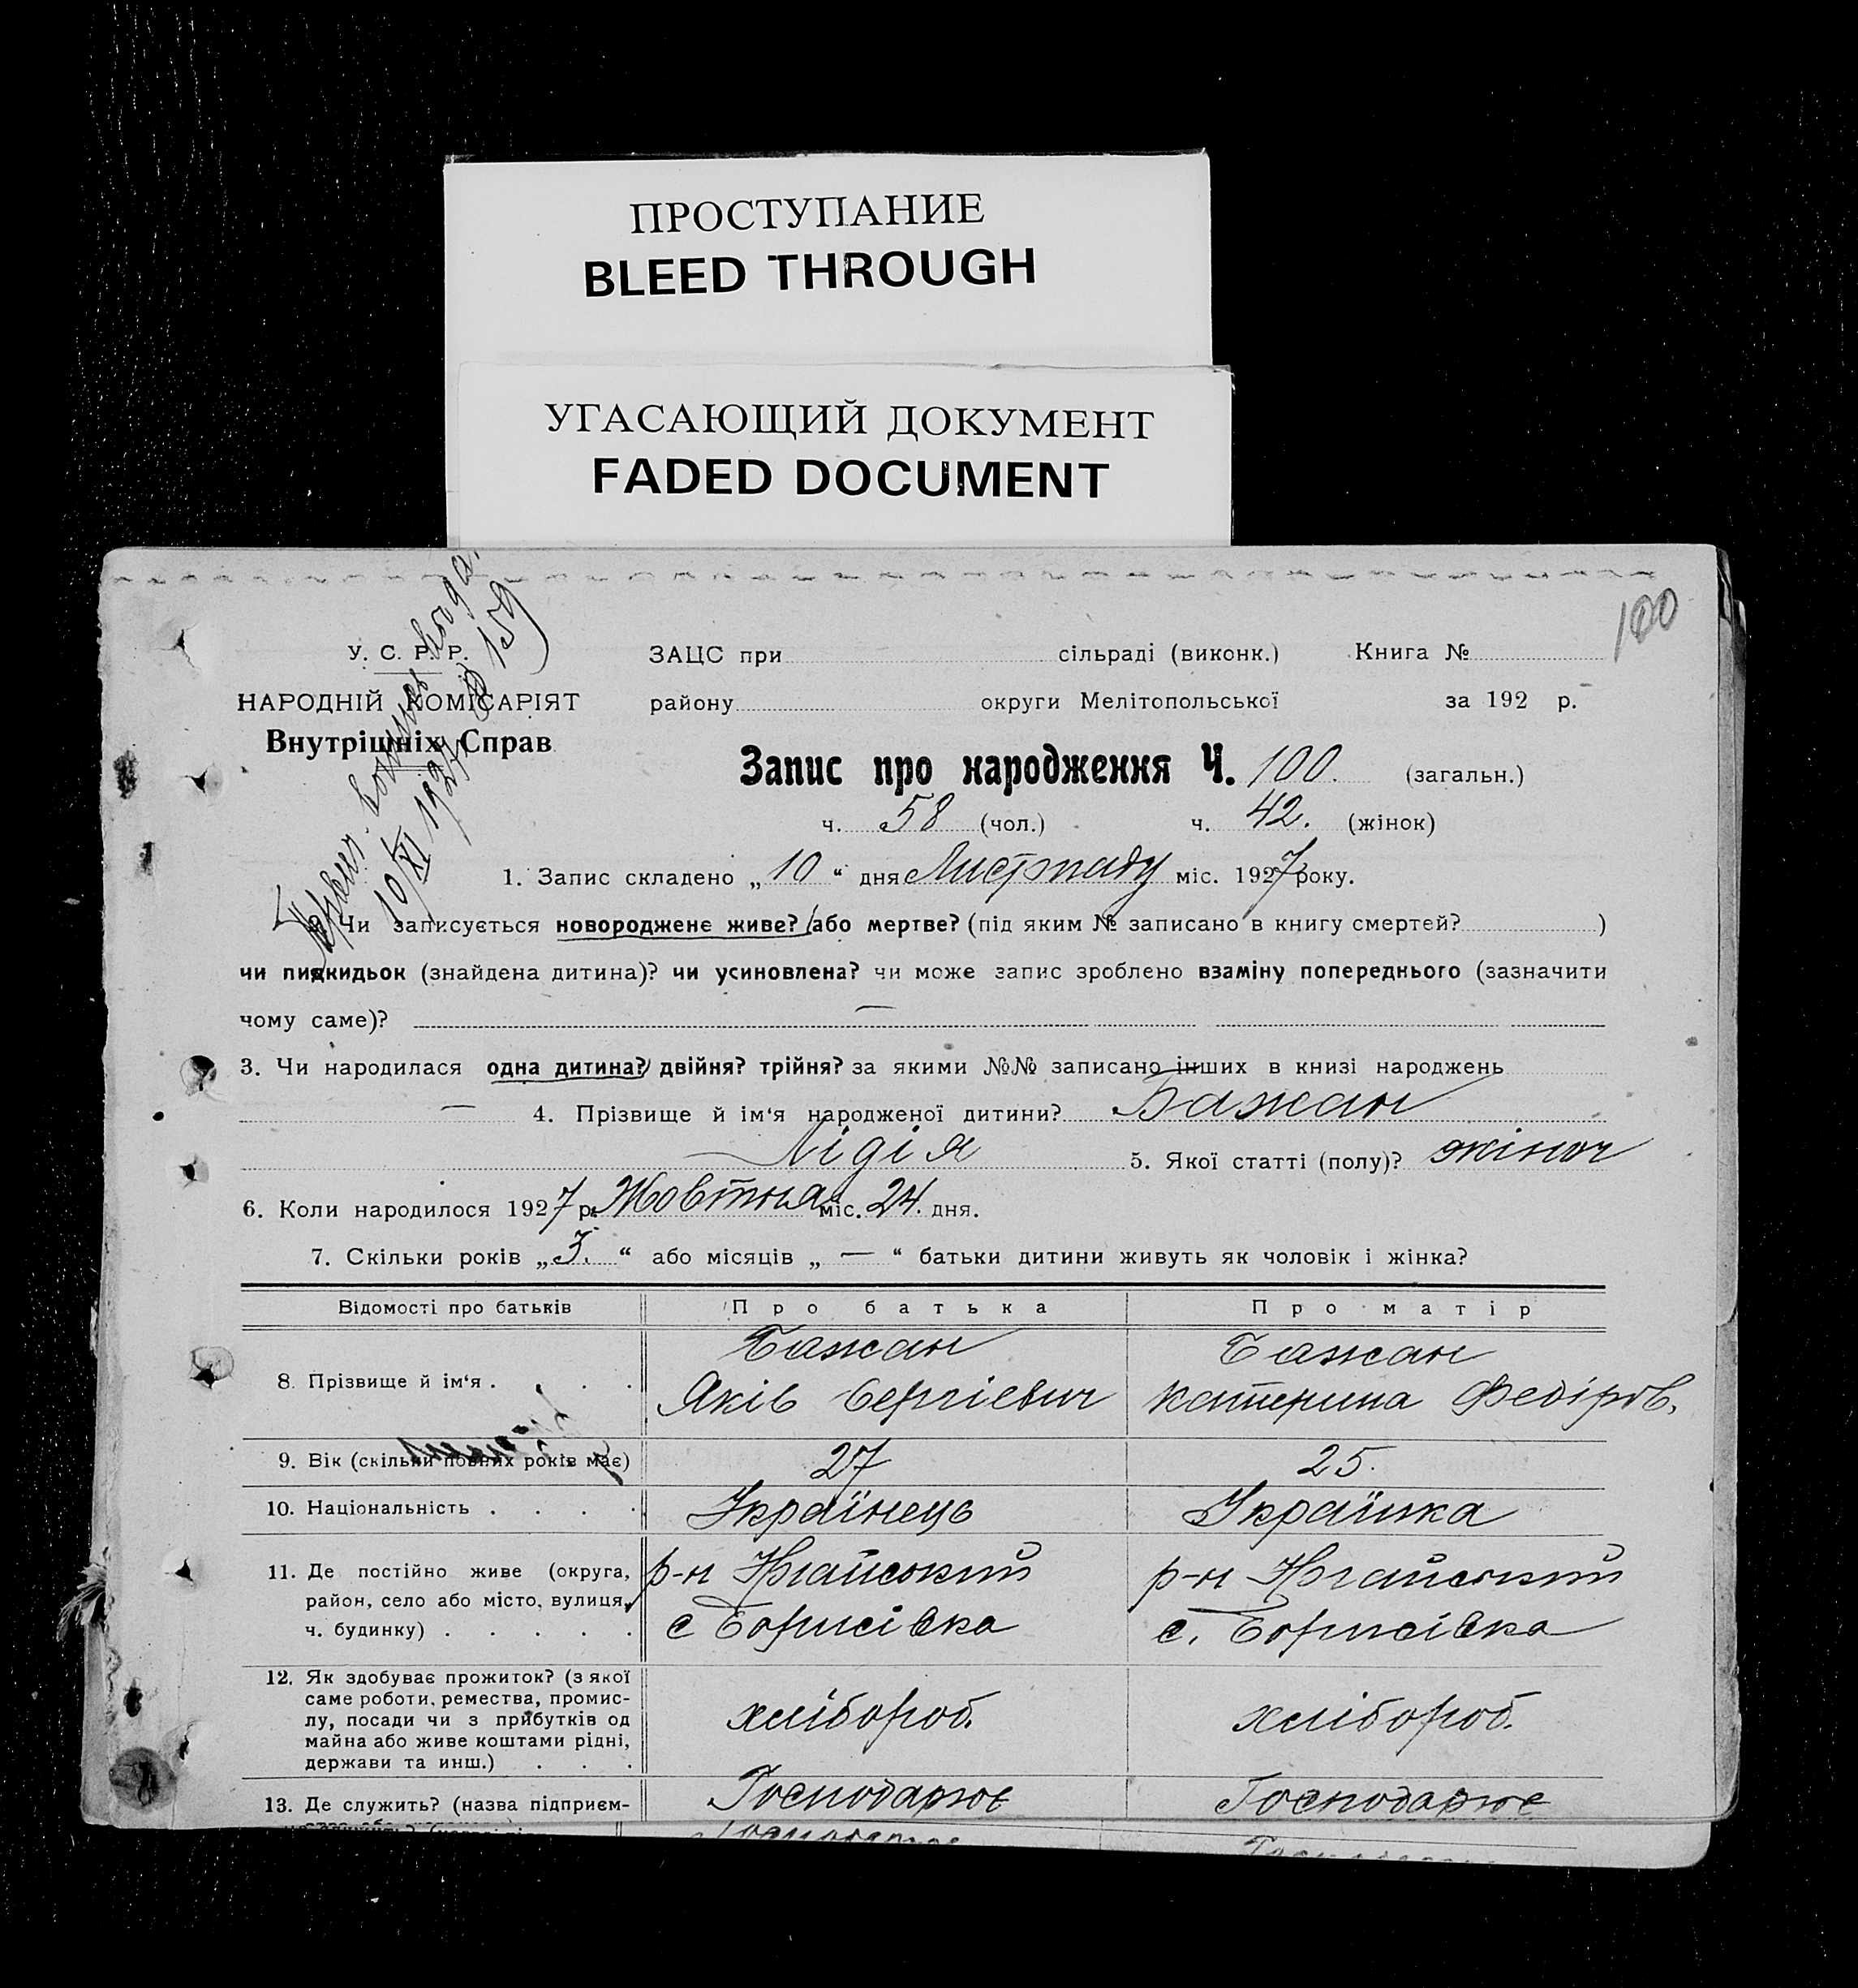 ПРОСТУПАНИЕ
BLEED THROUGH
УГАСАЮЩИЙ ДОКУМЕНТ
FADED DOCUMENT
100
У. С. Р. Р.
НАРОДНІЙ КОМІСАРІЯТ
Внутрішніх Справ
10/XI 1927 159
ЗАЦС при сільраді (виконк.) Книга №
району округи Мелітопольської за 192 р.
Запис про народження Ч. 100. (загальн.)
ч. 58 (чол.) ч. 42. (жінок)
1. Запис складено „ 10 “ дня Листопаду міс. 1927 року.
Чи записується новороджене живе? або мертве? (під яким № записано в книгу смертей? )
чи пидкидьок (знайдена дитина)? чи усиновлена? чи може запис зроблено взаміну попереднього (зазначити
чому саме)? —
3. Чи народилася одна дитина? двійня? трійня? за якими №№ записано інших в книзі народжень
— 4. Прізвище й ім‘я народженої дитини? Бажан
Лідія 5. Якої статті (полу)? жіноч
6. Коли народилося 1927 р. Жовтня міс. 24. дня.
7. Скільки років „ 3. “ або місяців „ — “ батьки дитини живуть як чоловік і жінка?
Відомості про батьків Про батька Про матір
8. Прізвище й ім‘я . . . . Бажан Бажан
Яків Сергієвич Катерина Федіров.
9. Вік (скільки повних років має) 27 25.
10. Національність . . . . Українець Українка
11. Де постійно живе (округа, р-н Ногайський р-н Ногайський
район, село або місто, вулиця, с Борисівка с. Борисівка
ч. будинку) . . . . .
12. Як здобуває прожиток? (з якої
саме роботи, ремества, промис-
лу, посади чи з прибутків од хлібороб. хлібороб.
майна або живе коштами рідні,
держави та инш.) . . .
13. Де служить? (назва підприєм- Господарює Господарює